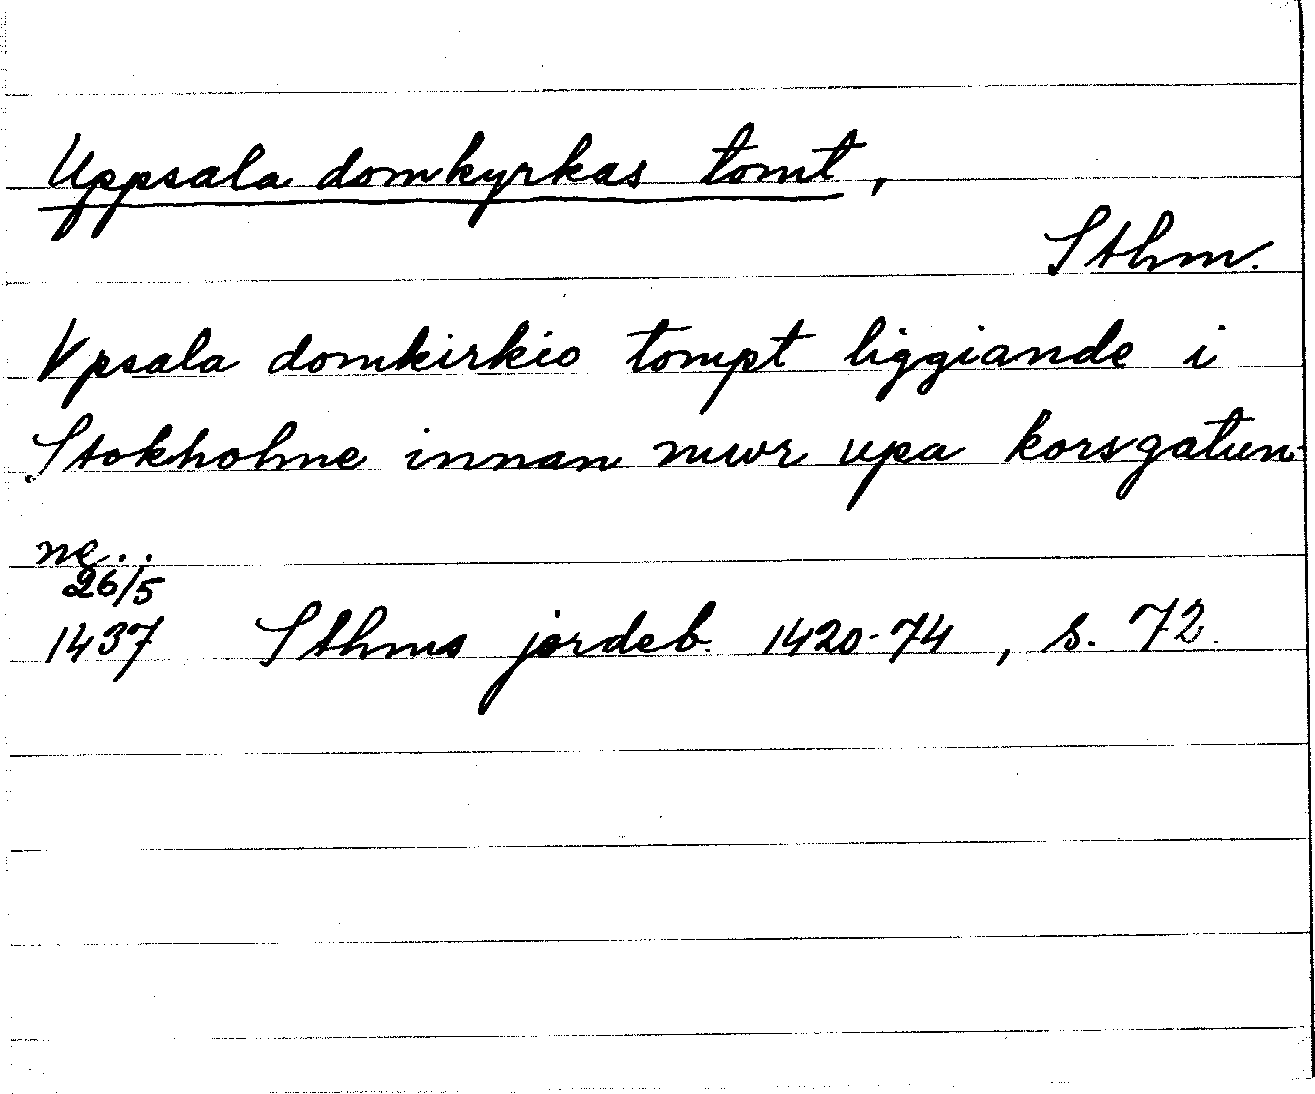 Uppsala domkyrkas tomt,
Sthm.
Vpsala domkirkio tompt liggiande i
Stokholme innan mwr vpa korsgatun-
ne..
26/5
1437 Sthms jordeb. 1420-74, s. 72.